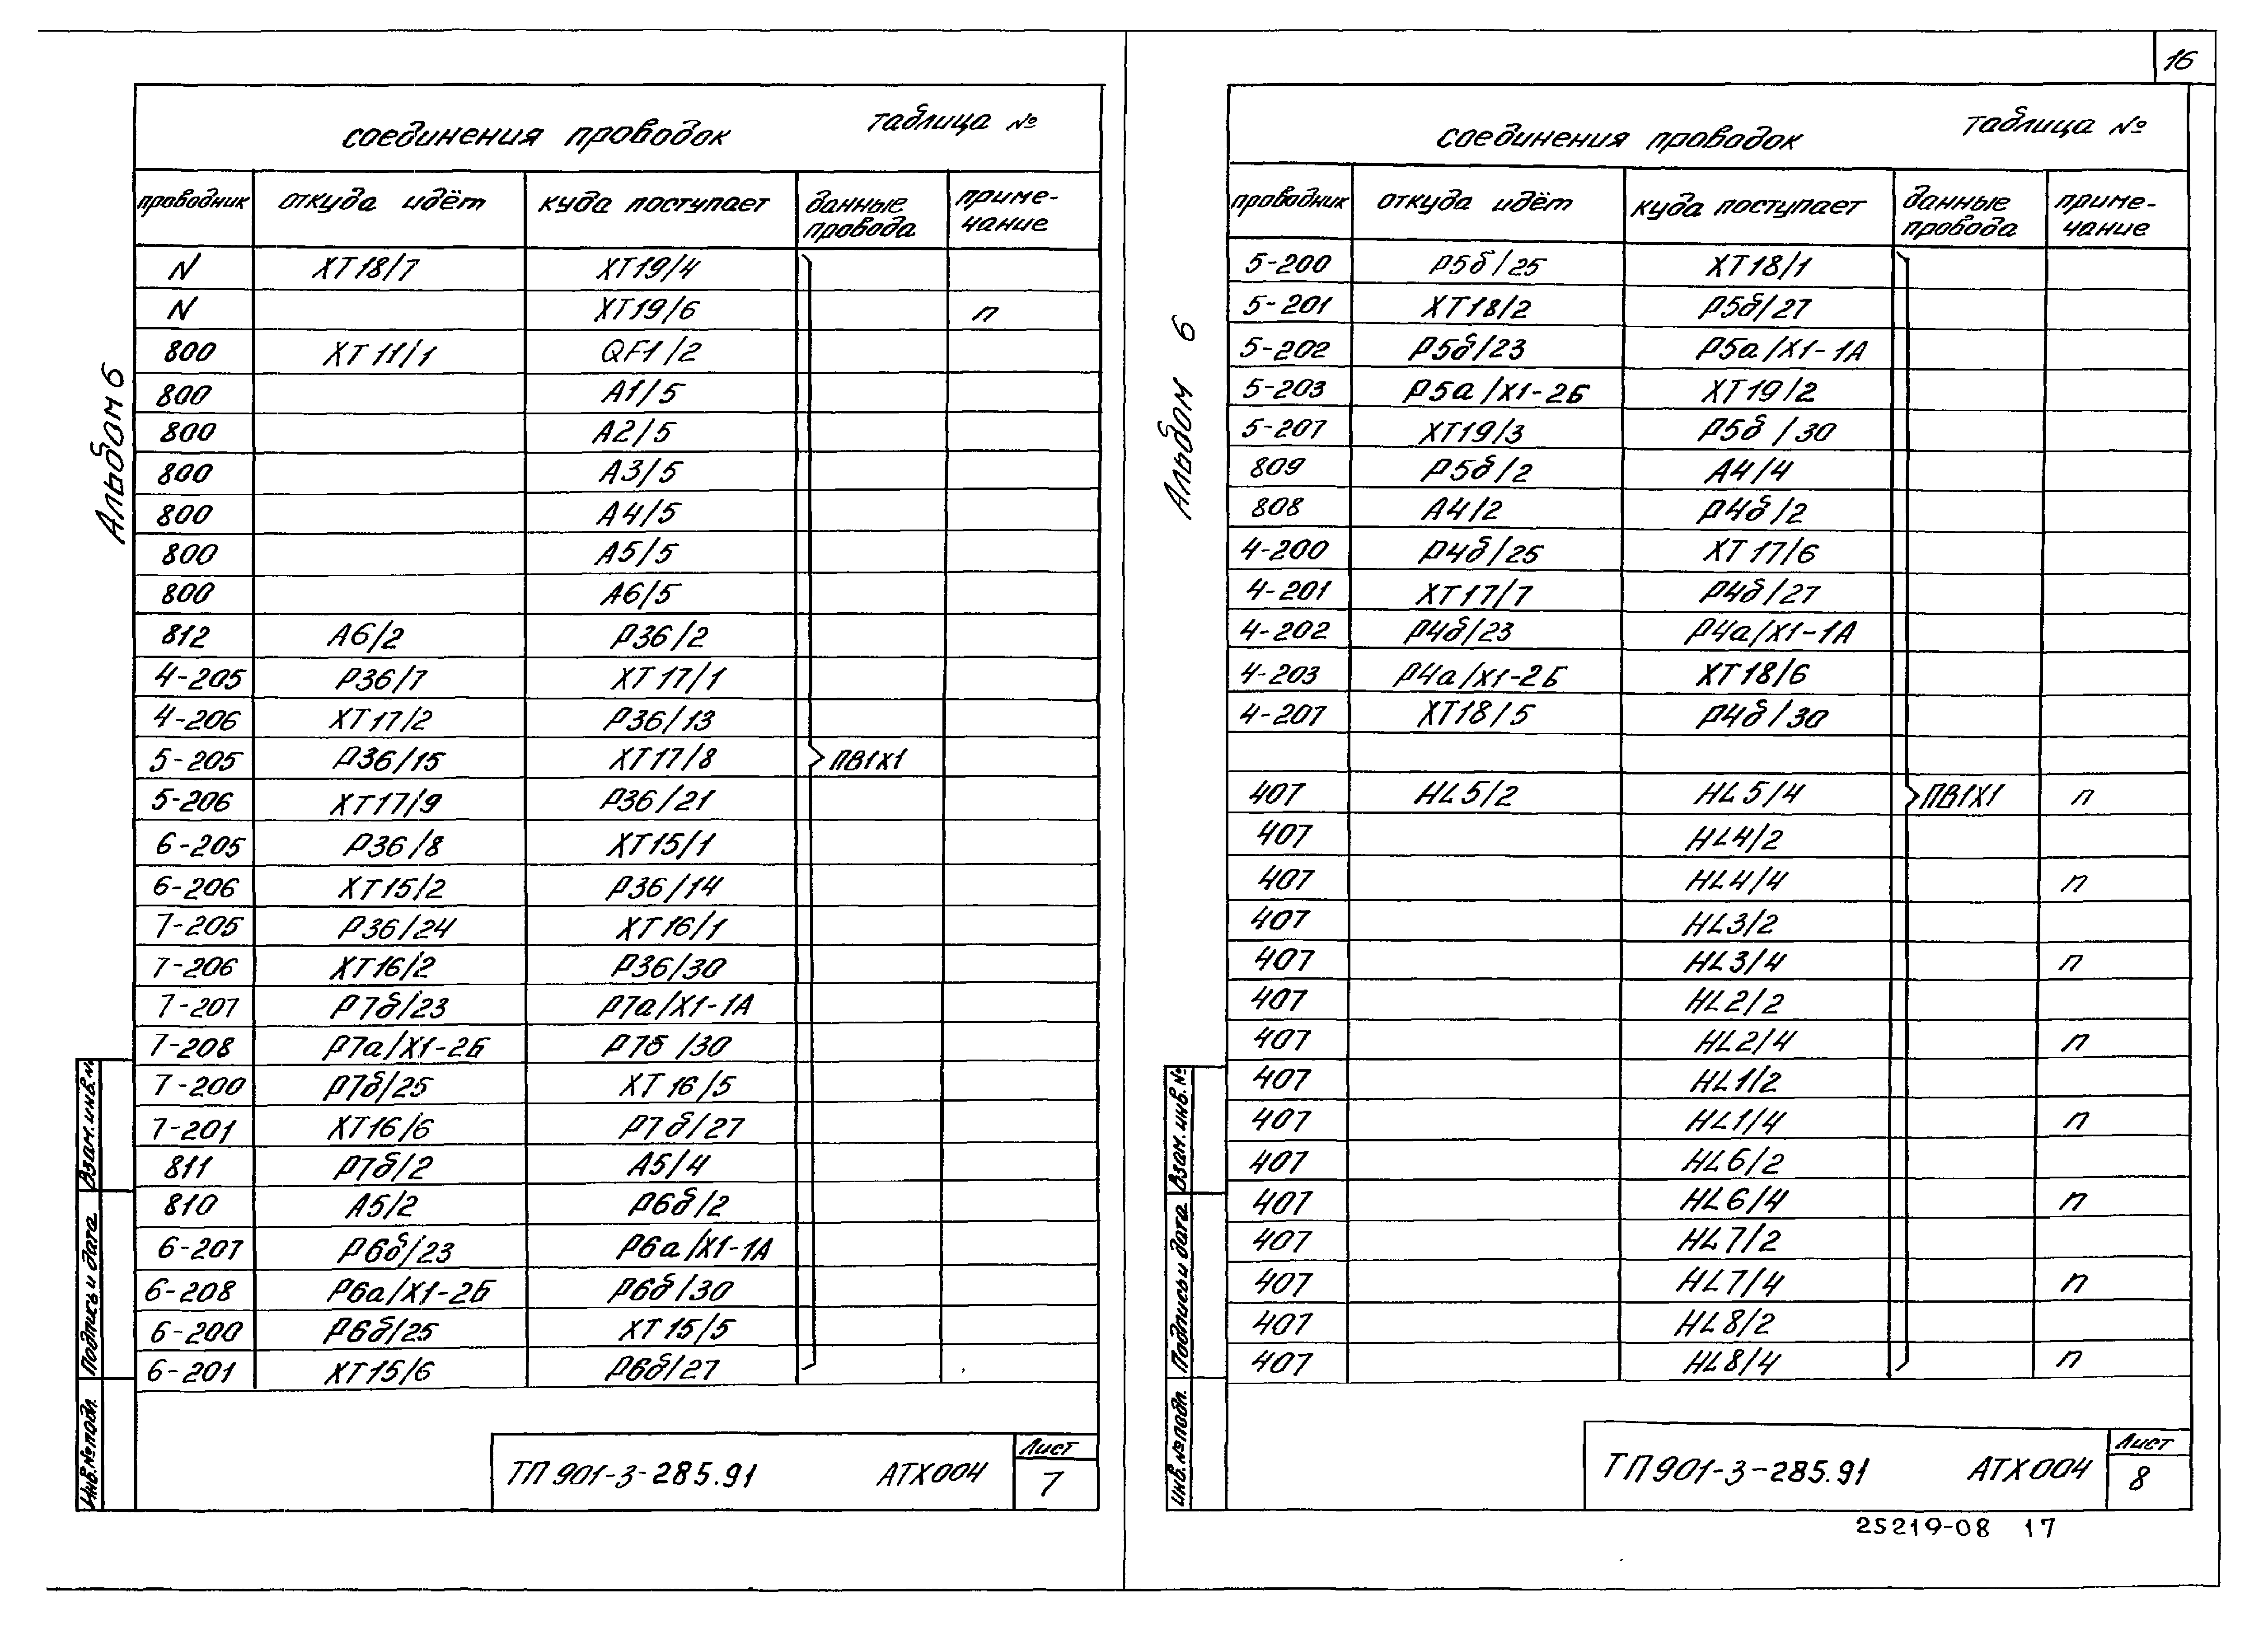 16
Альбом 6
соединения проводок таблица №
проводник откуда идёт куда поступает данные провода приме-чание
N ХТ18/7 ХТ19/4
N ХТ19/6 п
800 ХТ11/1 QF1/2
800 А1/5
800 А2/5
800 А3/5
800 А4/5
800 А5/5
800 А6/5
812 А6/2 Р36/2
4-205 Р36/7 ХТ17/1
4-206 ХТ17/2 Р36/13
5-205 Р36/15 ХТ17/8 ПВ1Х1
5-206 ХТ17/9 Р36/21
6-205 Р36/8 ХТ15/1
6-206 ХТ15/2 Р36/14
7-205 Р36/24 ХТ16/1
7-206 ХТ16/2 Р36/30
7-207 Р7б/23 Р7а/Х1-1А
7-208 Р7а/Х1-2Б Р7б/30
7-200 Р7б/25 ХТ16/5
7-201 ХТ16/6 Р7б/27
811 Р7б/2 А5/4
810 А5/2 Р6б/2
6-207 Р6б/23 Р6а/Х1-1А
6-208 Р6а/Х1-2Б Р6б/30
6-200 Р6б/25 ХТ15/5
6-201 ХТ15/6 Р6б/27
Взам. инв. №
Подпись и дата
Инв. № подл.
ТП 901-3-285.91 АТХ004 Лист 7
Альбом 6
соединения проводок таблица №
проводник откуда идёт куда поступает данные провода приме-чание
5-200 Р5б/25 ХТ18/1
5-201 ХТ18/2 Р5б/27
5-202 Р5б/23 Р5а/Х1-1А
5-203 Р5а/Х1-2Б ХТ19/2
5-207 ХТ19/3 Р5б/30
809 Р5б/2 А4/4
808 А4/2 Р4б/2
4-200 Р4б/25 ХТ17/6
4-201 ХТ17/7 Р4б/27
4-202 Р4б/23 Р4а/Х1-1А
4-203 Р4а/Х1-2Б ХТ18/6
4-207 ХТ18/5 Р4б/30
407 HL5/2 HL5/4 ПВ1Х1 п
407 HL4/2
407 HL4/4 п
407 HL3/2
407 HL3/4 п
407 HL2/2
407 HL2/4 п
407 HL1/2
407 HL1/4 п
407 HL6/2
407 HL6/4 п
407 HL7/2
407 HL7/4 п
407 HL8/2
407 HL8/4 п
Взам. инв. №
Подпись и дата
Инв. № подл.
ТП 901-3-285.91 АТХ004 Лист 8
25219-08 17